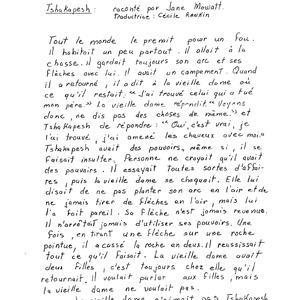 Tshakapesh : raconté par Jane Mowatt.
Traductrice : Cécile
Tout le monde le prenait pour un fou.
Il habitait un peu partout. Il allait à la
chasse. Il gardait toujours son arc et ses
Flèches avec lui. Il avait un campement. Quand
il a retourné, il a dit à la vieille dame où
ce qu'il restait. "J'ai trouvé celui qui a tué
mon père." La vieille dame répondit "Voyons
donc, ne dis pas des choses de même." et
Tshakapesh de répondre: "Oui, c'est vrai, je
l'ai trouvé, j'ai amené les cheveux avec moi."
Tshakapesh avait des pouvoirs, même si, il se
Faisait insulter. Personne ne croyait qu'il avait
des pouvoirs. Il essayait Toutes sortes d'affai-
res, puis la vieille dame se choquait. Elle lui
disait de ne pas planter son arc en l'air et de
ne jamais tirer de Flèches en l'air, mais lui
l'a fait pareil. Sa Flèche n'est jamais revenue.
Il n'arrêtait jamais d'utiliser ses pouvoirs. Une
Fois, en tirant une Flèche sur une roche
pointue, il a cassé la roche en deux. Il réussissait
tout ce qu'il Faisait. La vieille dame avait
deux Filles, c'est toujours chez elle qu'il
retournait. Il voulait parler aux Filles, mais
la vieille dame ne voulait pas.
vieille dame n'aimait pas Tshakapesh